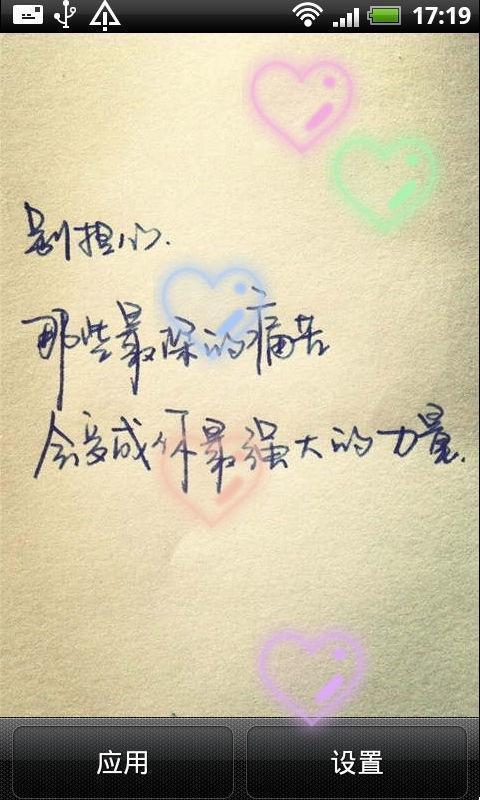 17:19
别担心.
那些最深的痛苦
会变成你最强大的力量.
应用 设置